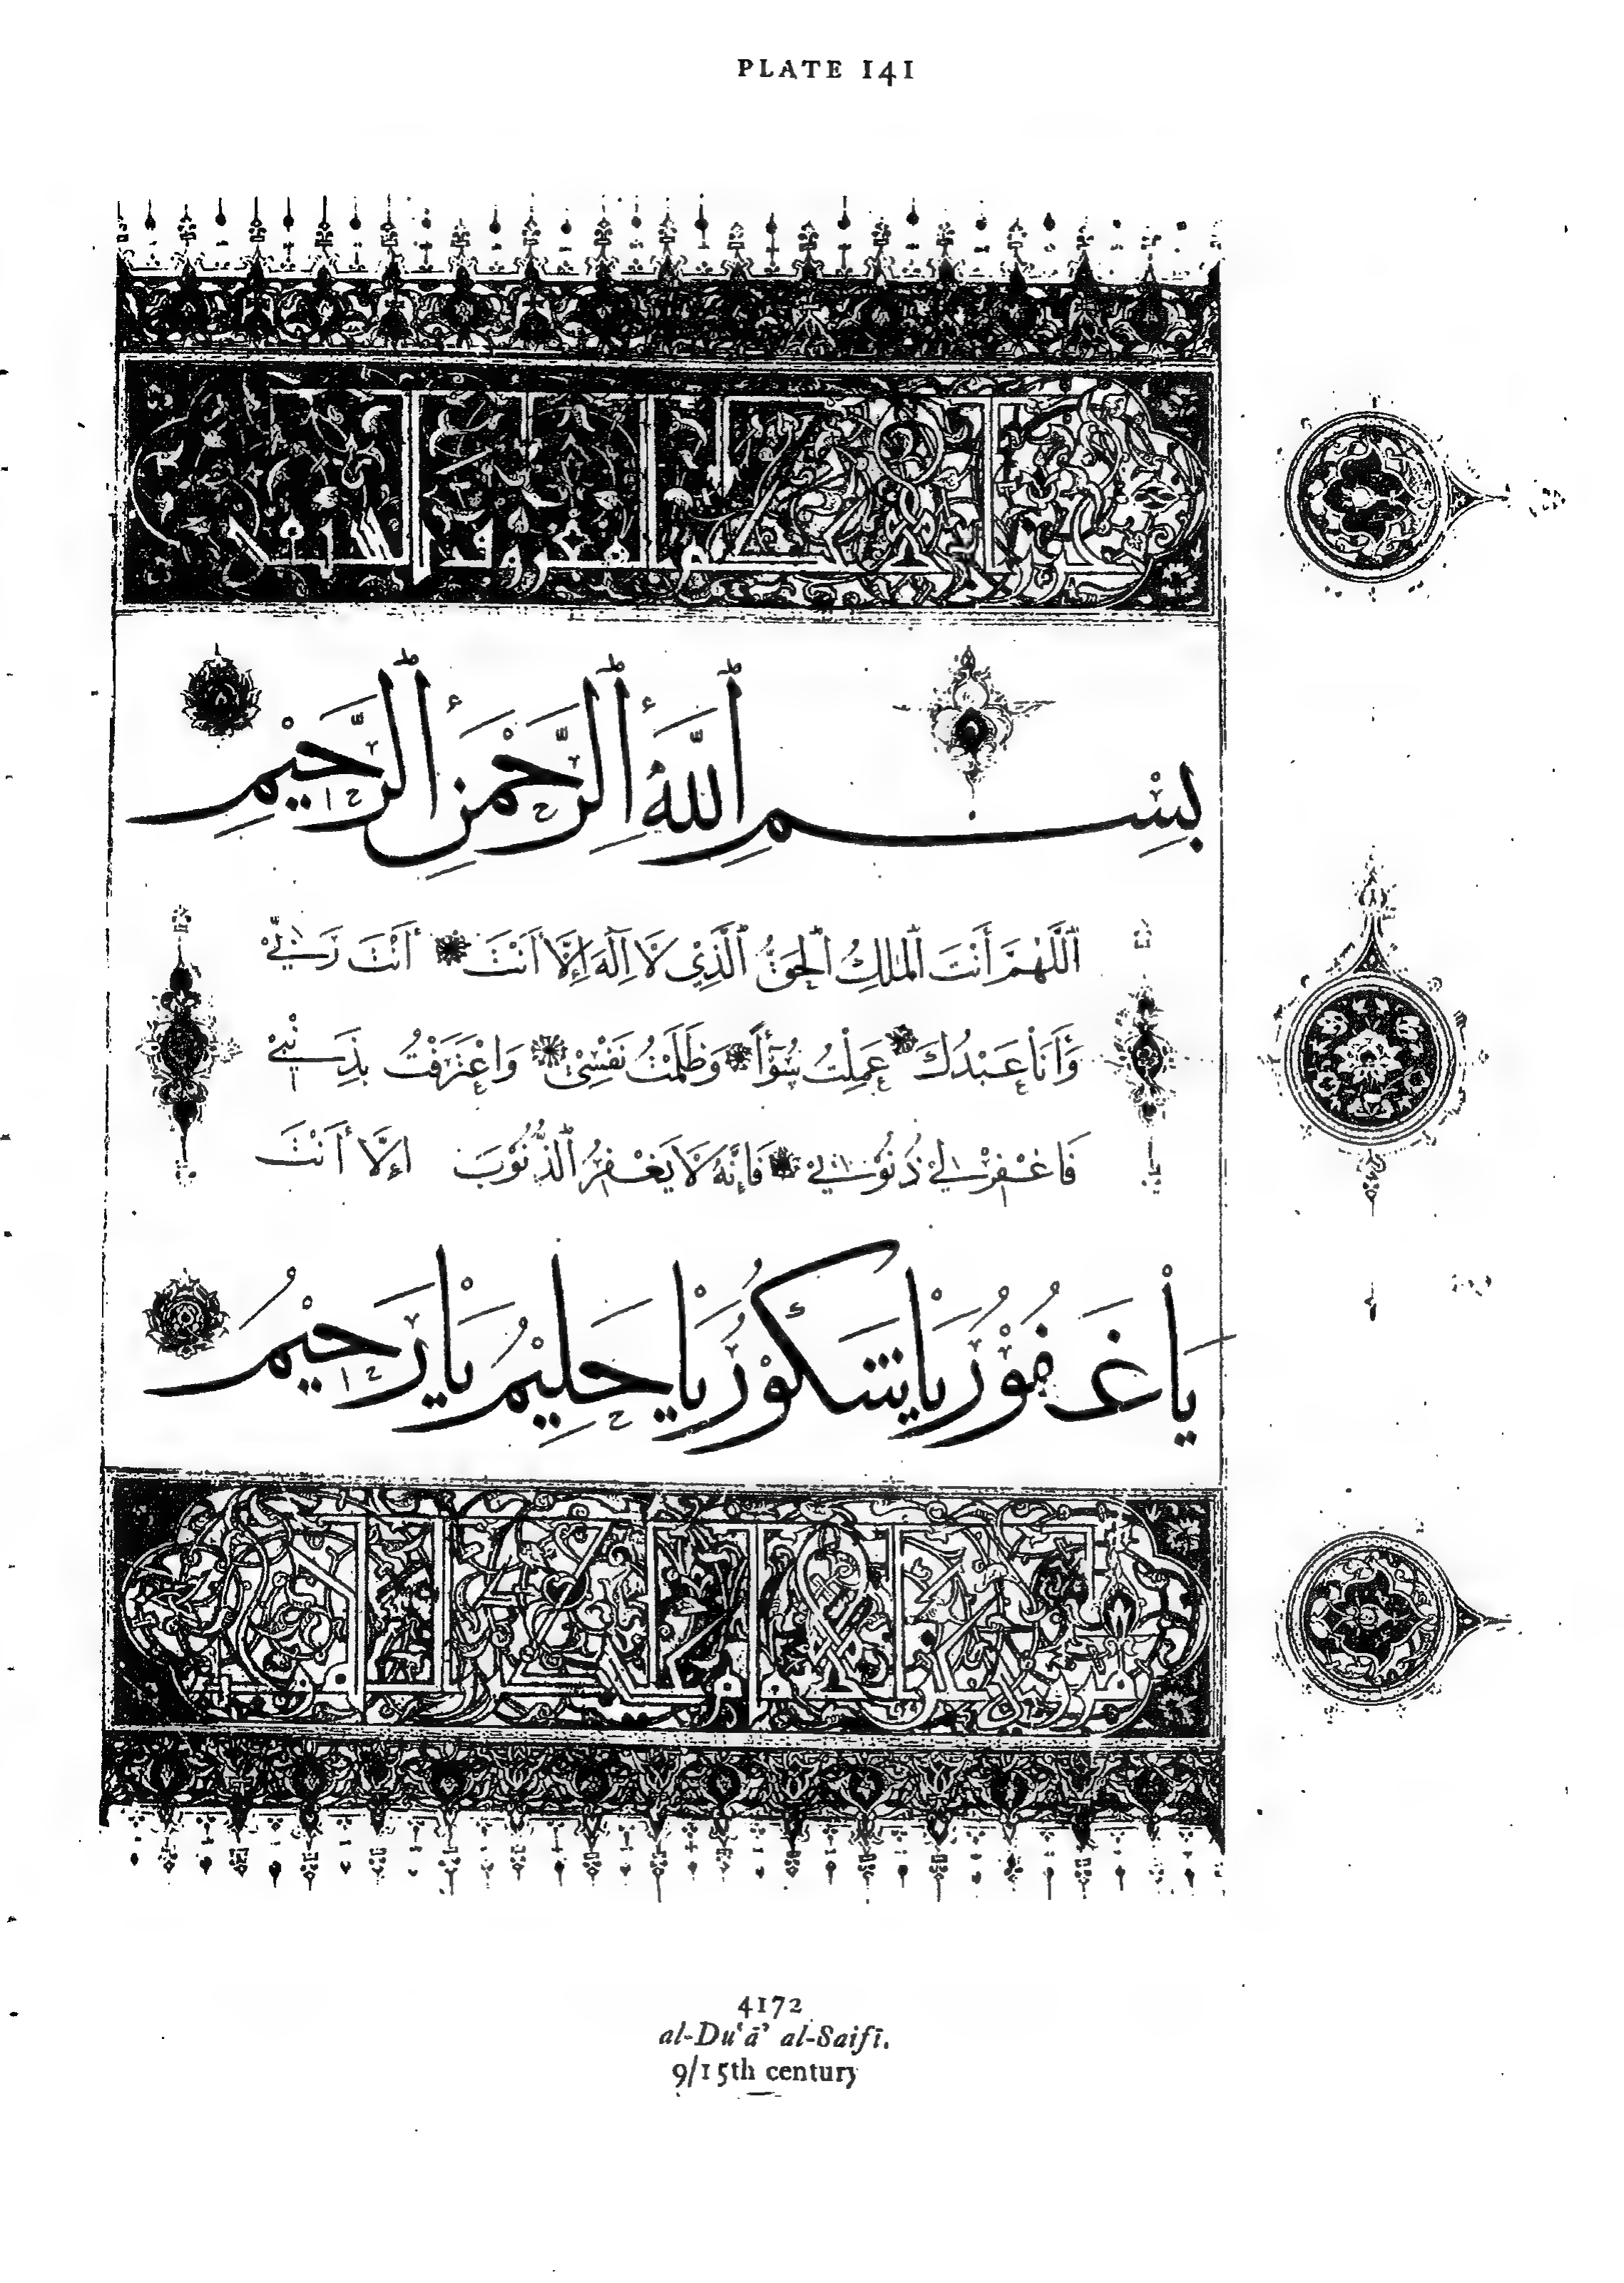 PLATE 141
بِسْمِ ٱللَّهِ ٱلرَّحْمَنِ ٱلرَّحِيْمِ
ٱللَّهُمَّ أَنْتَ ٱلْمَلِكُ ٱلْحَقُّ ٱلَّذِيْ لَا إِلَهَ إِلَّا أَنْتَ أَنْتَ رَبِّيْ
وَأَنَا عَبْدُكَ عَمِلْتُ سُوْأً وَظَلَمْتُ نَفْسِيْ وَاعْتَرَفْتُ بِذَنْبِيْ
فَاغْفِرْ لِيْ ذُنُوْبِيْ فَإِنَّهُ لَا يَغْفِرُ ٱلذُّنُوْبَ إِلَّا أَنْتَ
يَا غَفُوْرُ يَا شَكُوْرُ يَا حَلِيْمُ يَا رَحِيْمُ
4172
al-Du‘ā’ al-Saifī.
9/15th century